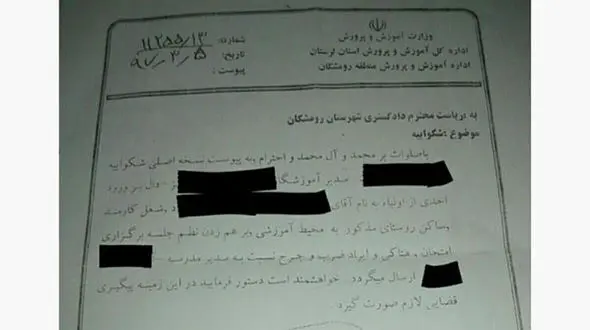 وزارت آموزش و پرورش
اداره کل آموزش و پرورش استان لرستان
اداره آموزش و پرورش منطقه رومشکان
شماره: ۱۱۲۵۵/۱۳
تاریخ: ۹۷/۳/۵
پیوست:
به ریاست محترم دادگستری شهرستان رومشکان
موضوع: شکوایه
باصلوات بر محمد و آل محمد و احترام، به پیوست نسخه اصلی شکوایه
مدیر آموزشگا بر ورود
احدی از اولیاء به نام آقای شغل کارمند
وساکن روستای مذکور به محیط آموزشی وبر هم زدن نظم جلسه برگزاری
امتحان و هتاکی و ایراد ضرب و جرح نسبت به مدیر مدرسه
ارسال میگردد. خواهشمند است دستور فرمایید در این زمینه پیگیری
قضایی لازم صورت گیرد